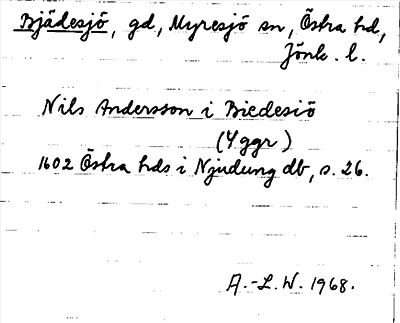 Bjädesjö, gd, Myresjö sn, Östra hd,
Jönk. l.
Nils Andersson i Biedesiö
(4 ggr)
1602 Östra hds i Njudung db, s. 26.
A.-L.W. 1968.